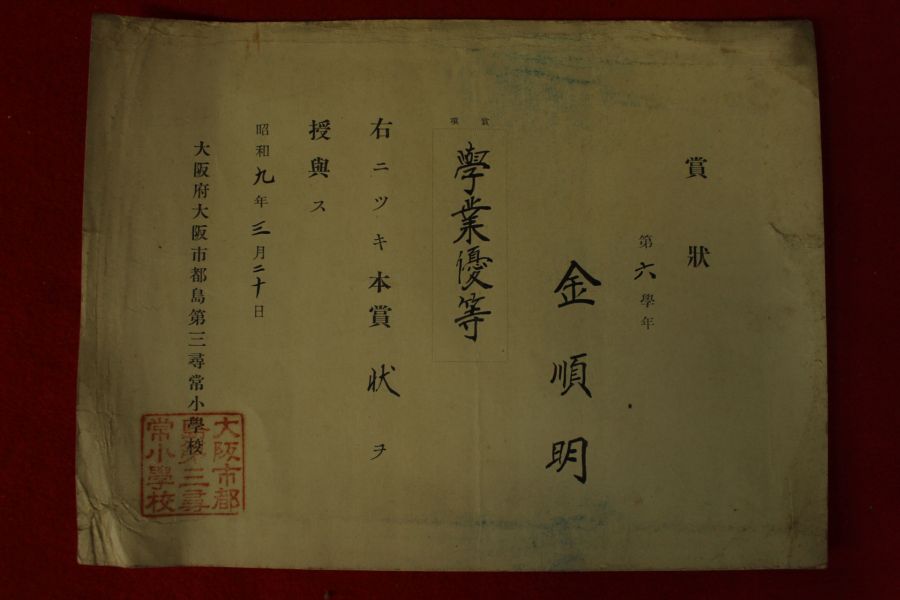 賞狀
第六學年
金順明
賞項
學業優等
右ニツキ本賞狀ヲ
授與ス
昭和九年三月二十日
大阪府大阪市都島第三尋常小學校
大阪市都
島第三尋
常小學校